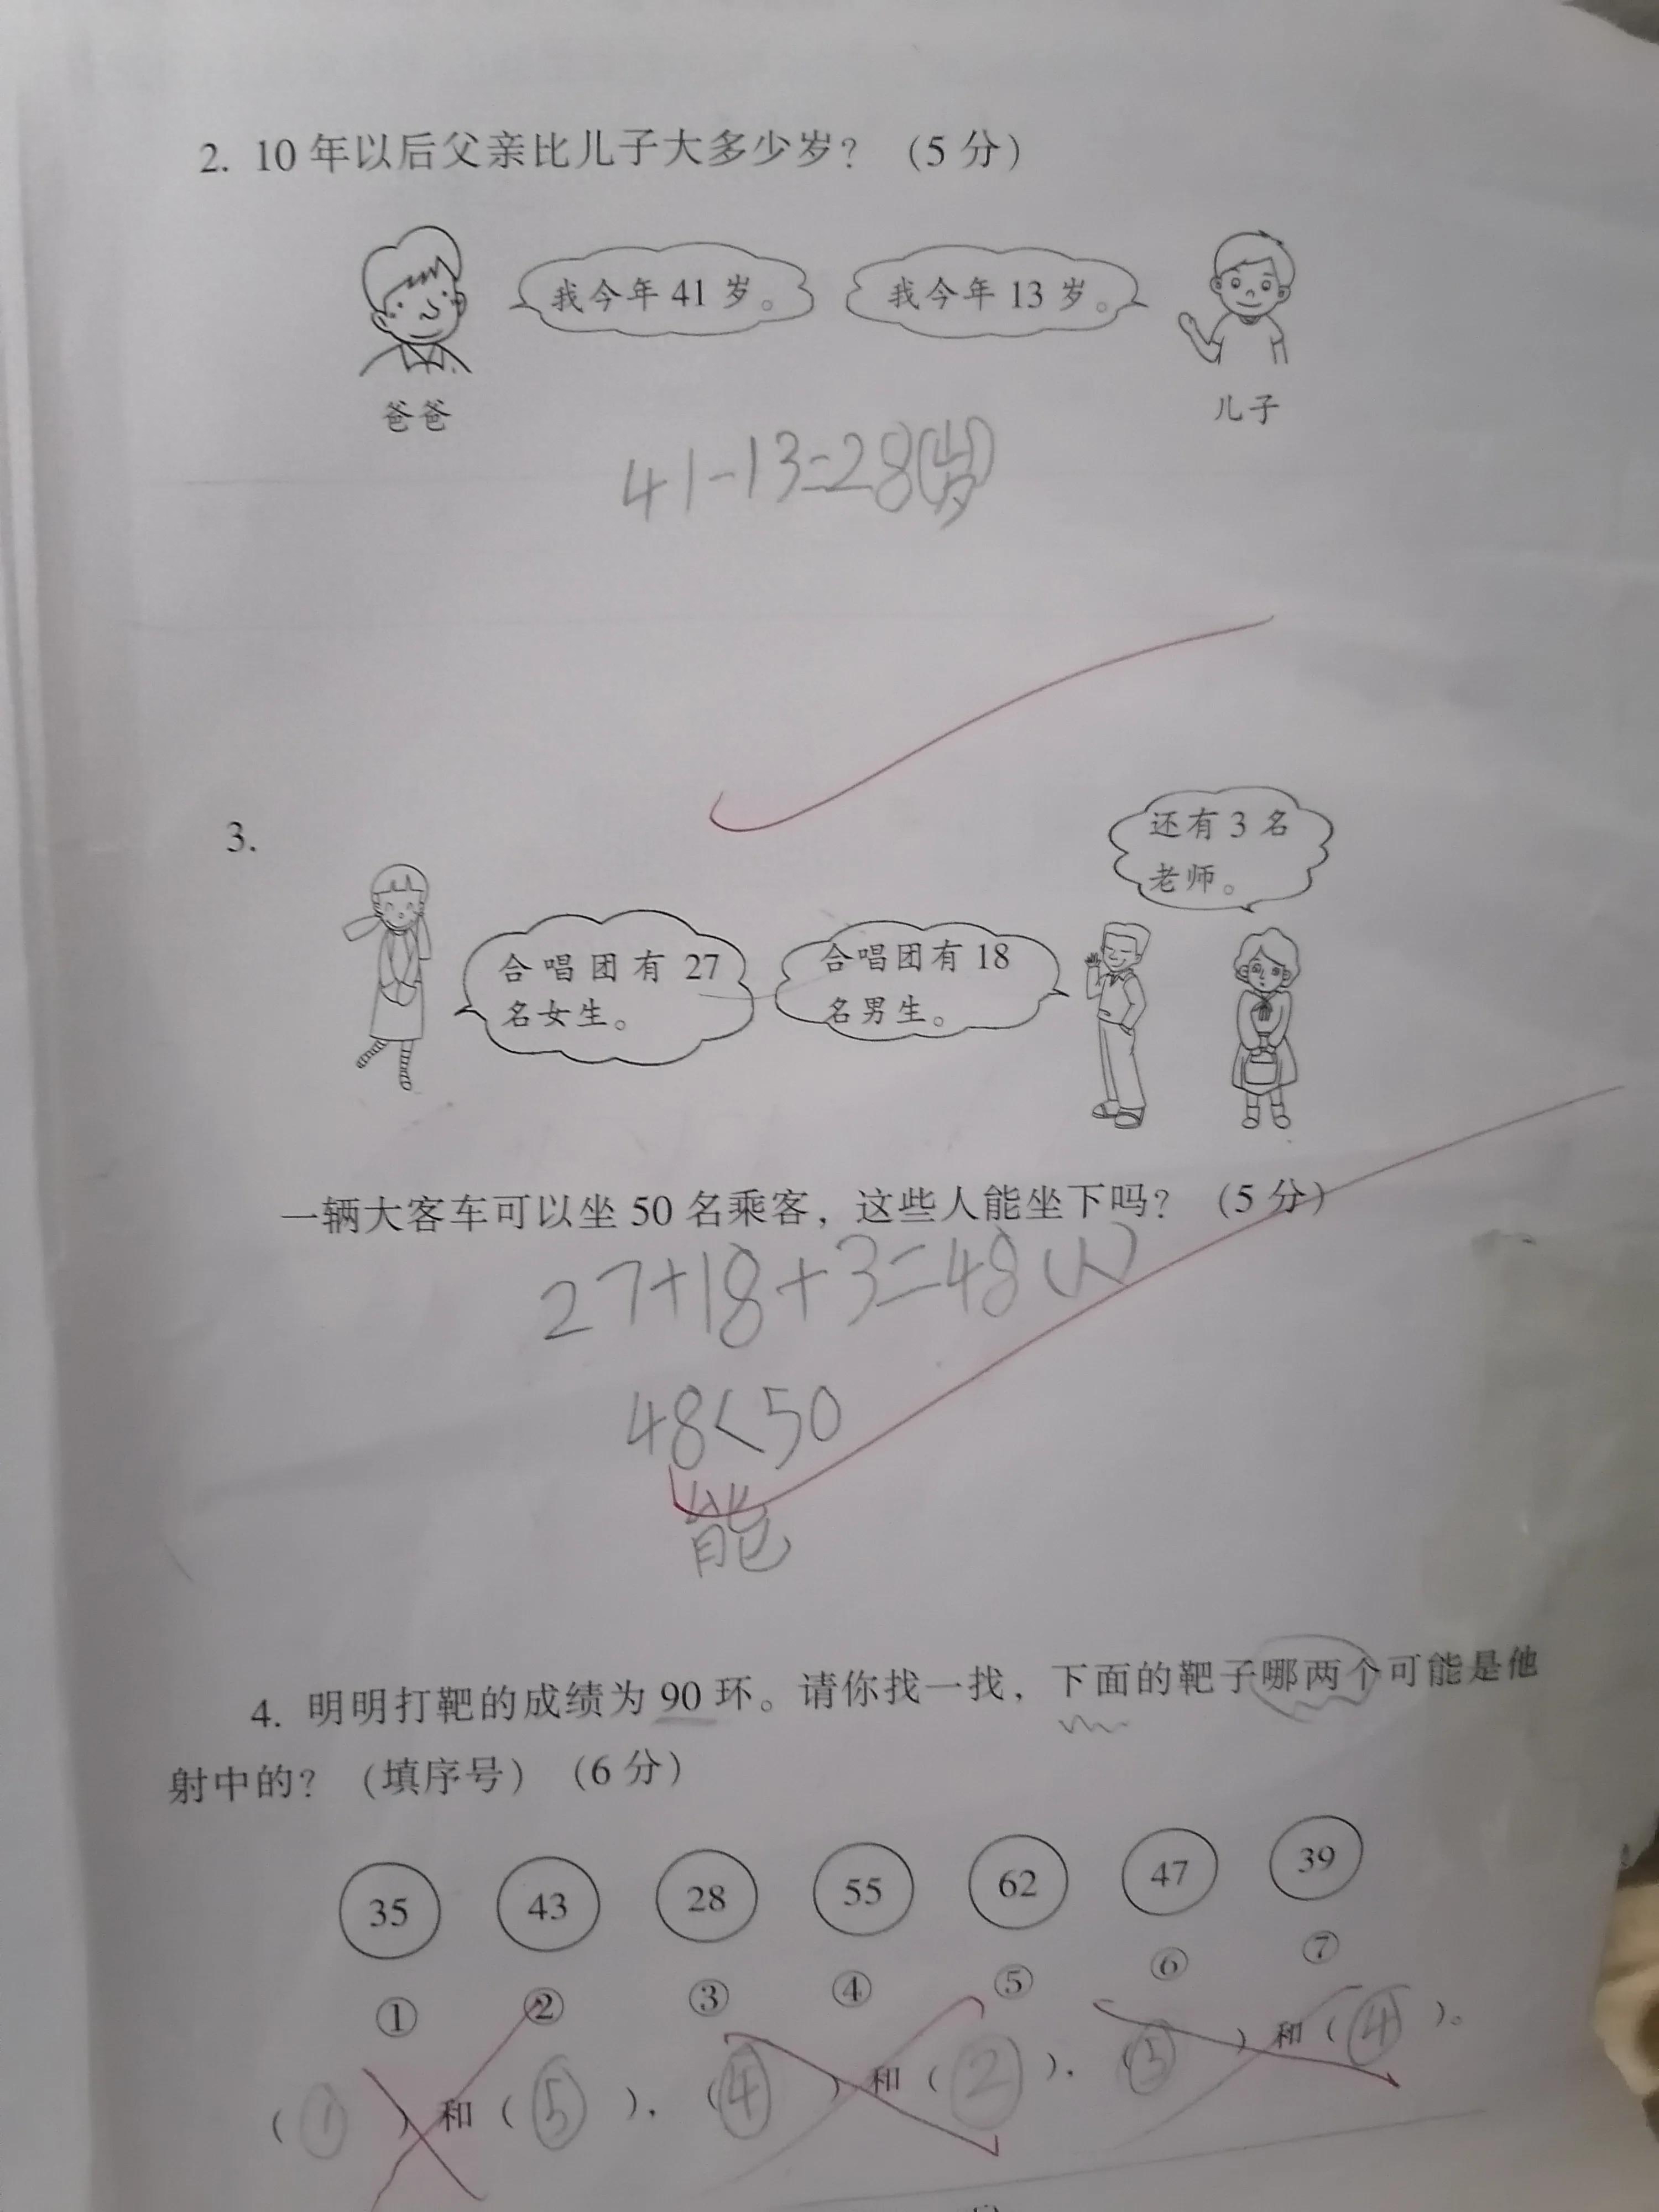 2. 10 年以后父亲比儿子大多少岁? (5 分)
我今年 41 岁。
我今年 13 岁。
爸爸
儿子
41-13=28(岁)
3.
还有 3 名
老师。
合唱团有 27
名女生。
合唱团有 18
名男生。
一辆大客车可以坐 50 名乘客, 这些人能坐下吗? (5 分)
27+18+3=48(人)
48<50
能
4. 明明打靶的成绩为 90 环。请你找一找, 下面的靶子哪两个可能是他
射中的? (填序号) (6 分)
35 43 28 55 62 47 39
① ② ③ ④ ⑤ ⑥ ⑦
(①)和(⑤), (④)和(②), (③)和(④)。